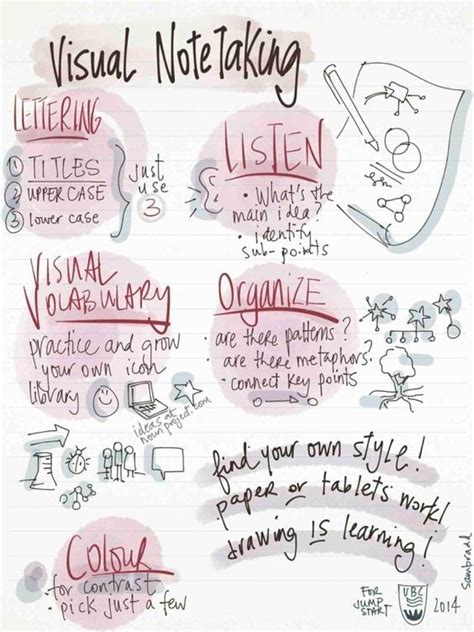 Visual NoteTaking
LETTERING
① TITLES
② UPPER CASE
③ lower case
just
use
3
LISTEN
• What's the
main idea?
• identify
sub-points
VISUAL
VOCABULARY
practice and grow
your own icon
library
ideas at
nounproject.com
ORGANIZE
• are there patterns?
• are there metaphors?
• connect key points
find your own style!
paper or tablets work!
drawing IS learning!
COLOUR
• for contrast
• pick just a few
FOR
JUMP
START
UBC
2014
sambradd